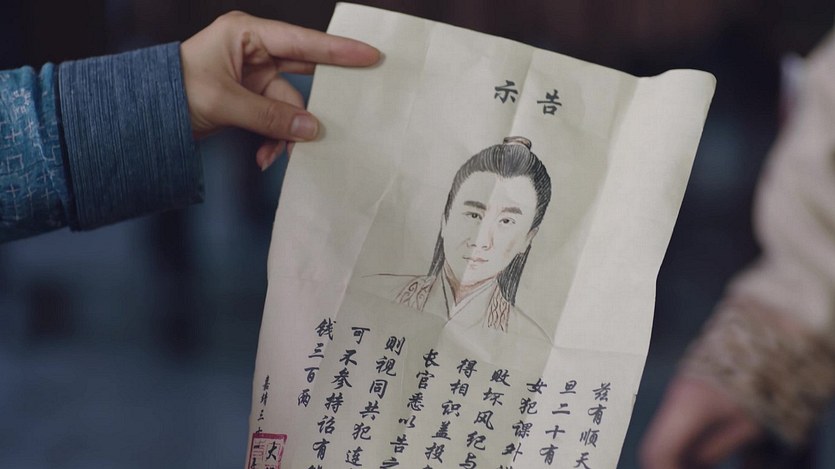 告示
兹有顺天
旦二十有
女犯课外
败坏风纪与
得相识盖投
长官悉以告之
则视同共犯连
可不参持诏有
钱三百两
嘉靖三
大